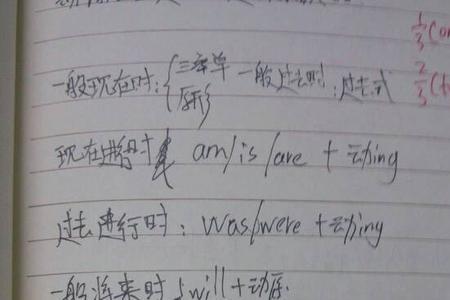 一般现在时:{三单 一般过去时:过去式
原形
现在进行时 am/is/are + 动ing
过去进行时:was/were +动ing
一般将来时 { will+动原